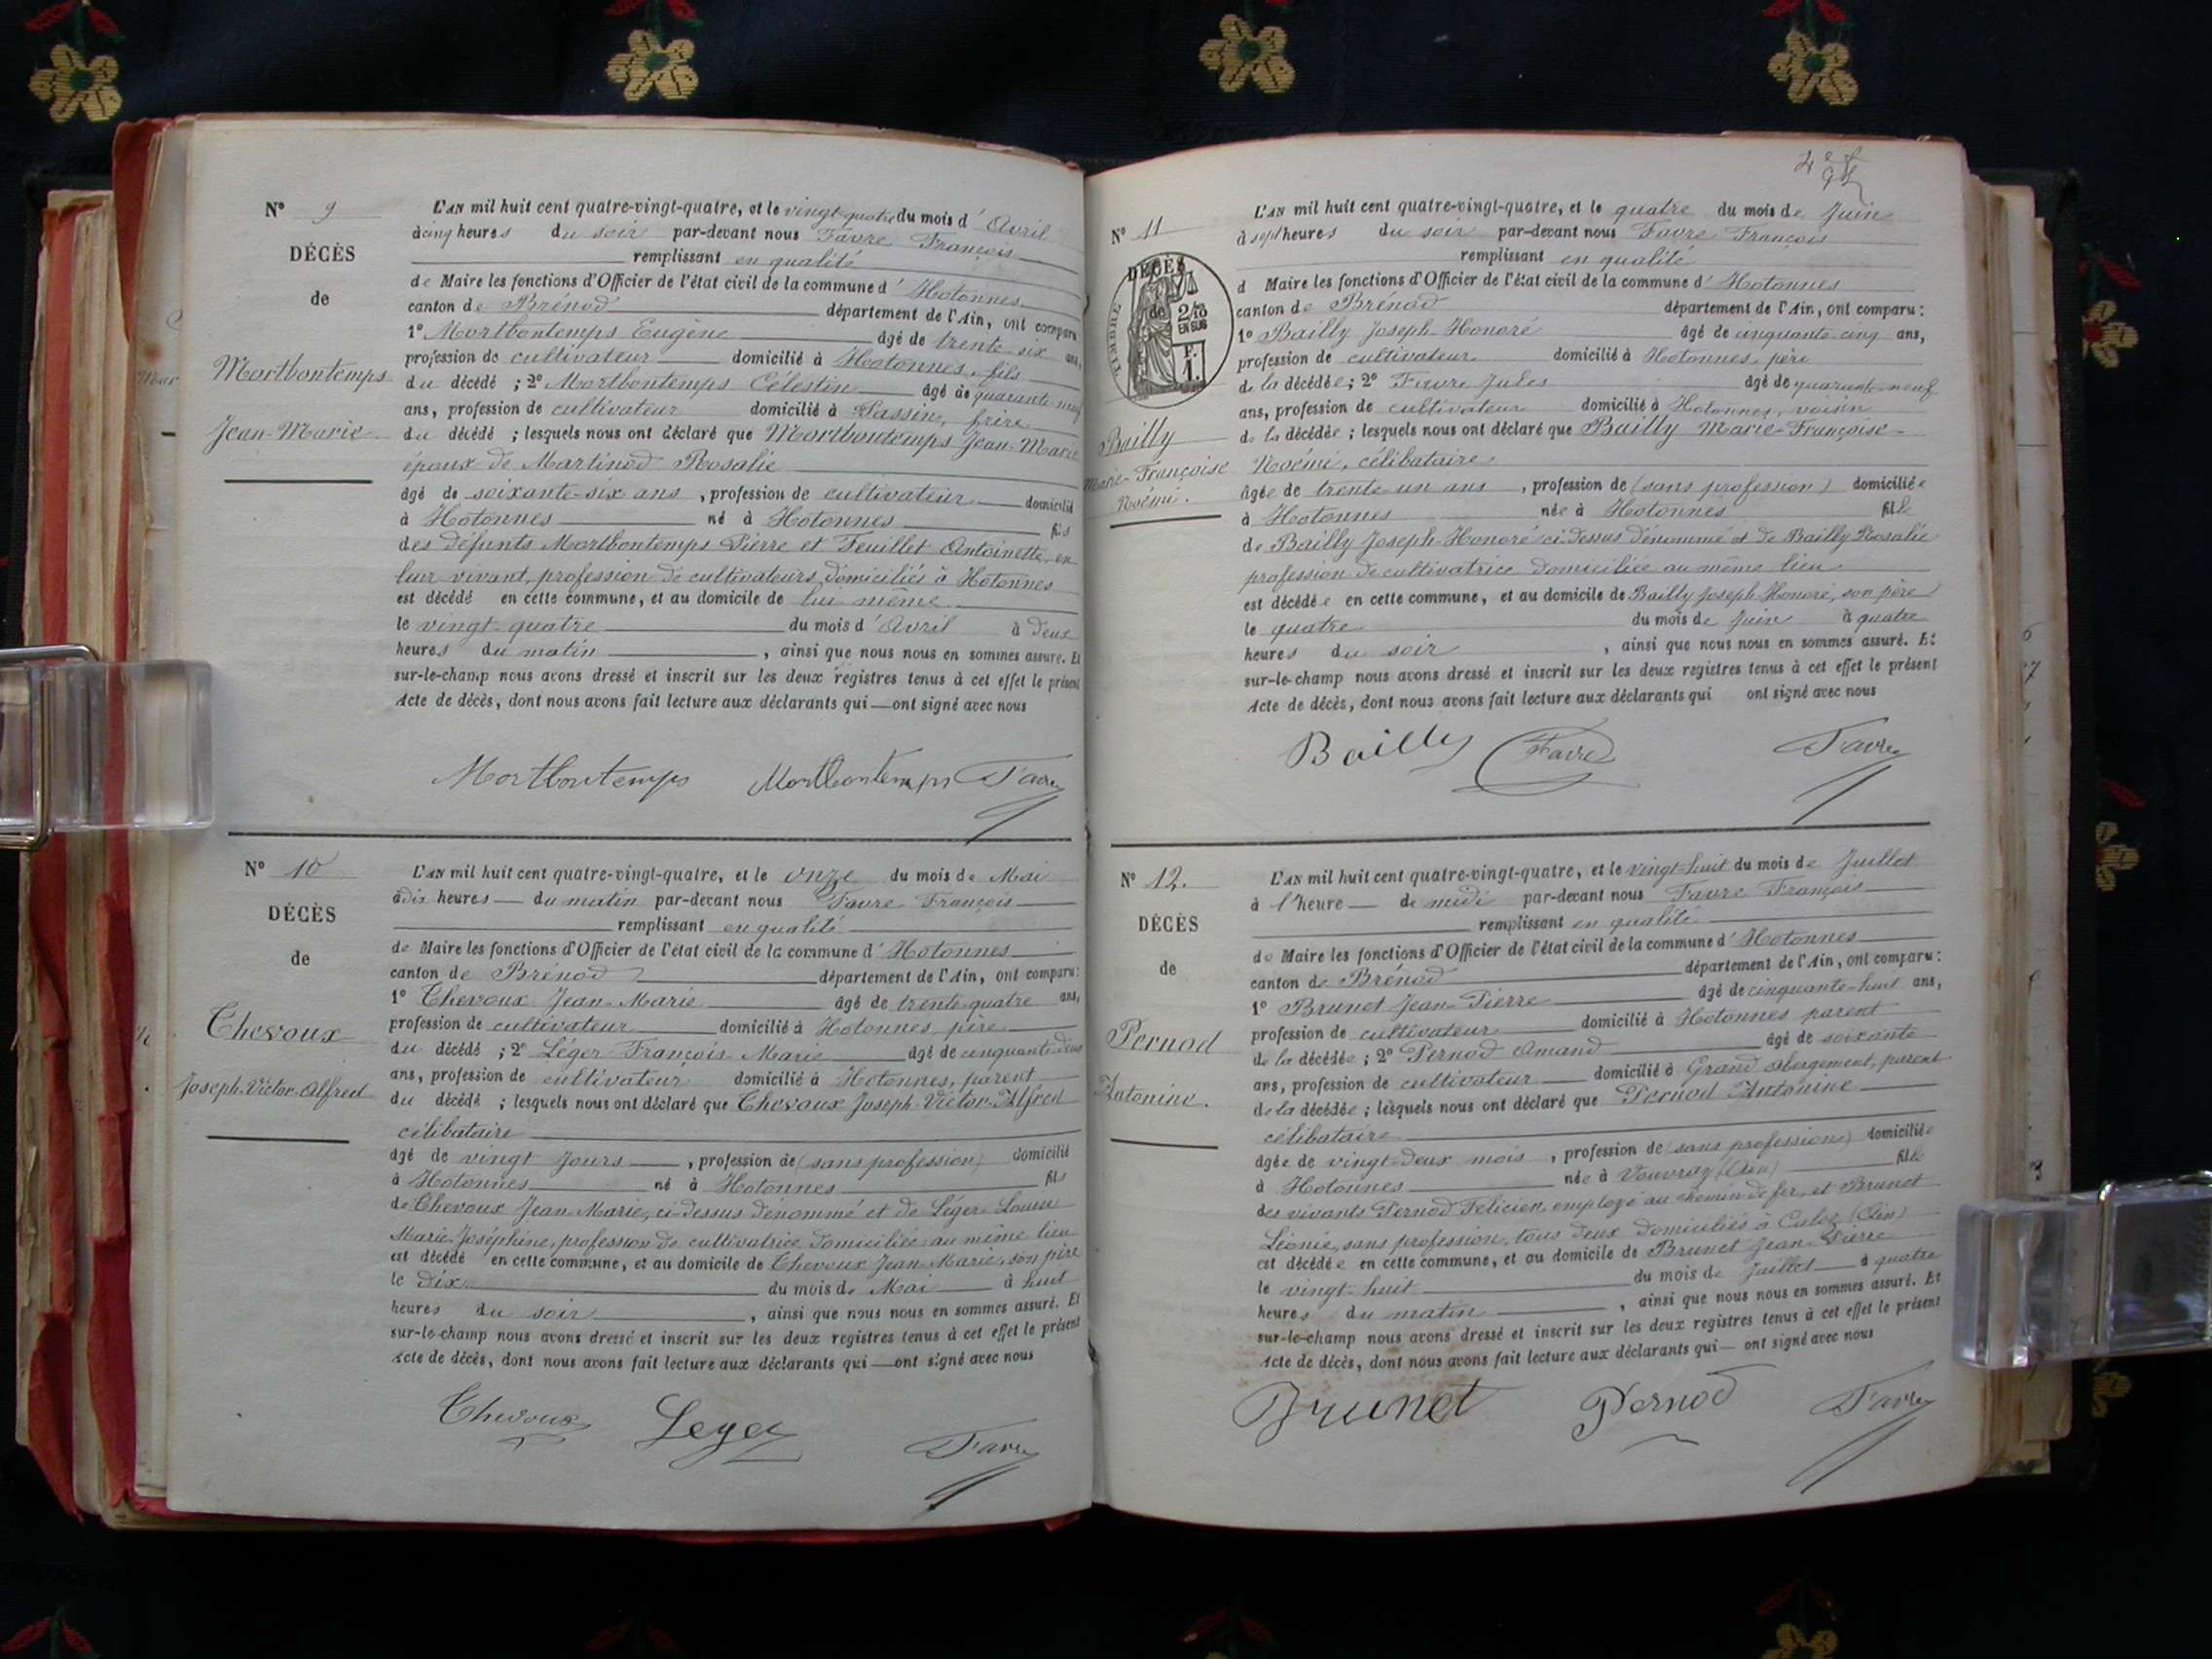 Nº 9
DÉCÈS
de
Mortbontemps
Jean-Marie
L'AN mil huit cent quatre-vingt-quatre, et le vingt-quatre du mois d'Avril
à cinq heures du soir par-devant nous Favre François
remplissant en qualité
de Maire les fonctions d'Officier de l'état civil de la commune d'Hotonnes
canton de Brénod département de l'Ain, ont comparu
1º Mortbontemps Eugène âgé de trente-six ans,
profession de cultivateur domicilié à Hotonnes, fils
du décédé ; 2º Mortbontemps Célestin âgé de quarante-neuf
ans, profession de cultivateur domicilié à Passin, frère
du décédé ; lesquels nous ont déclaré que Mortbontemps Jean-Marie
époux de Martinod Rosalie
âgé de soixante-six ans, profession de cultivateur domicilié
à Hotonnes né à Hotonnes fils
des défunts Mortbontemps Pierre et Feuillet Antoinette, en
leur vivant, profession de cultivateurs, domiciliés à Hotonnes
est décédé en cette commune, et au domicile de lui même
le vingt-quatre du mois d'Avril à deux
heures du matin, ainsi que nous nous en sommes assuré. Et
sur-le-champ nous avons dressé et inscrit sur les deux registres tenus à cet effet le présent
Acte de décès, dont nous avons fait lecture aux déclarants qui — ont signé avec nous
Mortbontemps Mortbontemps Favre
Nº 10
DÉCÈS
de
Chevoux
Joseph-Victor-Alfred
L'AN mil huit cent quatre-vingt-quatre, et le onze du mois de Mai
à dix heures — du matin par-devant nous Favre François
remplissant en qualité
de Maire les fonctions d'Officier de l'état civil de la commune d'Hotonnes
canton de Brénod département de l'Ain, ont comparu :
1º Chevoux Jean-Marie âgé de trente-quatre ans,
profession de cultivateur domicilié à Hotonnes, père
du décédé ; 2º Léger François-Marie âgé de cinquante-deux
ans, profession de cultivateur domicilié à Hotonnes, parent
du décédé ; lesquels nous ont déclaré que Chevoux Joseph-Victor-Alfred
célibataire
âgé de vingt jours, profession de (sans profession) domicilié
à Hotonnes né à Hotonnes fils
de Chevoux Jean-Marie, ci-dessus dénommé et de Léger Louise
Marie-Joséphine, profession de cultivatrice domiciliée au même lieu
est décédé en cette commune, et au domicile de Chevoux Jean-Marie, son père
le dix du mois de Mai à huit
heures du soir, ainsi que nous nous en sommes assuré. Et
sur-le-champ nous avons dressé et inscrit sur les deux registres tenus à cet effet le présent
Acte de décès, dont nous avons fait lecture aux déclarants qui — ont signé avec nous
Chevoux Leger Favre
Nº 11
DÉCÈS
de
TIMBRE
2/10
EN SUS
F.
1.
Bailly
Marie-Françoise
Noémi.
L'AN mil huit cent quatre-vingt-quatre, et le quatre du mois de Juin
à sept heures du soir par-devant nous Favre François
remplissant en qualité
d Maire les fonctions d'Officier de l'état civil de la commune d'Hotonnes
canton de Brénod département de l'Ain, ont comparu :
1º Bailly Joseph-Honoré âgé de cinquante-cinq ans,
profession de cultivateur domicilié à Hotonnes, père
de la décédée ; 2º Favre Jules âgé de quarante-neuf
ans, profession de cultivateur domicilié à Hotonnes, voisin
de la décédée ; lesquels nous ont déclaré que Bailly Marie-Françoise-
Noémi, célibataire
âgée de trente-un ans, profession de (sans profession) domiciliée
à Hotonnes née à Hotonnes fille
de Bailly Joseph-Honoré ci-dessus dénommé et de Bailly Rosalie
profession de cultivatrice domiciliée au même lieu
est décédée en cette commune, et au domicile de Bailly Joseph Honoré, son père
le quatre du mois de Juin à quatre
heures du soir, ainsi que nous nous en sommes assuré. Et
sur-le-champ nous avons dressé et inscrit sur les deux registres tenus à cet effet le présent
Acte de décès, dont nous avons fait lecture aux déclarants qui ont signé avec nous
Bailly Favre Favre
Nº 12.
DÉCÈS
de
Pernod
Antonine.
L'AN mil huit cent quatre-vingt-quatre, et le vingt-huit du mois de Juillet
à l'heure — de midi par-devant nous Favre François
remplissant en qualité
de Maire les fonctions d'Officier de l'état civil de la commune d'Hotonnes
canton de Brénod département de l'Ain, ont comparu :
1º Brunet Jean-Pierre âgé de cinquante-huit ans,
profession de cultivateur domicilié à Hotonnes parent
de la décédée ; 2º Pernod Amand âgé de soixante
ans, profession de cultivateur domicilié à Grand Abergement, parent
de la décédée ; lesquels nous ont déclaré que Pernod Antonine
célibataire
âgée de vingt-deux mois, profession de (sans profession) domiciliée
à Hotonnes née à Vouvray (Ain) fille
des vivants Pernod Félicien, employé au chemin de fer, et Brunet
Léonie, sans profession, tous deux domiciliés à Culoz (Ain)
est décédée en cette commune, et au domicile de Brunet Jean-Pierre
le vingt-huit du mois de Juillet à quatre
heures du matin, ainsi que nous nous en sommes assuré. Et
sur-le-champ nous avons dressé et inscrit sur les deux registres tenus à cet effet le présent
Acte de décès, dont nous avons fait lecture aux déclarants qui — ont signé avec nous
Brunet Pernod Favre